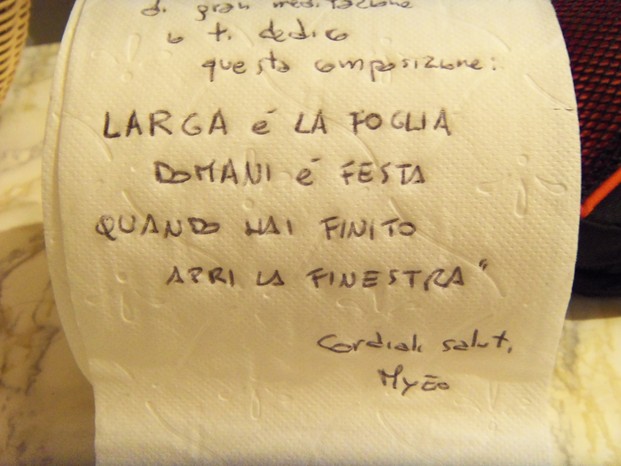 di gran meditazione
io ti dedico
questa composizione:
LARGA é LA FOGLIA
DOMANI é FESTA
QUANDO HAI FINITO
APRI LA FINESTRA"
Cordiali saluti,